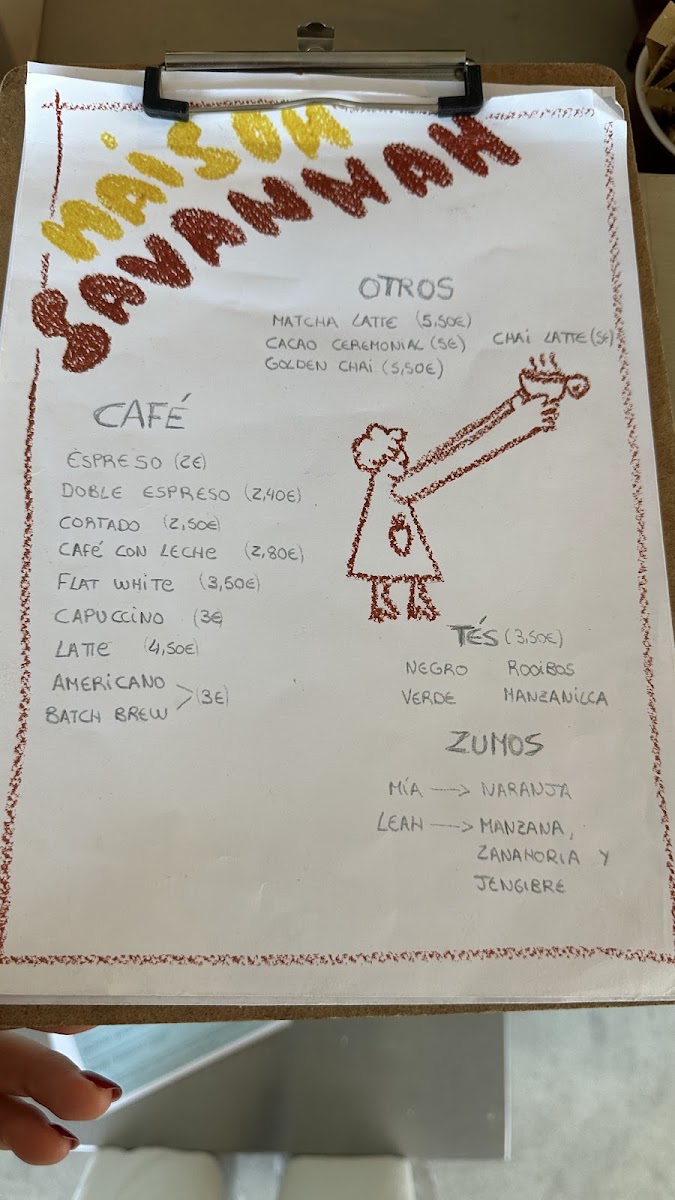 MAISON
SAVANNAH
OTROS
MATCHA LATTE (5,50€)
CACAO CEREMONIAL (5€) CHAI LATTE (5€)
GOLDEN CHAI (5,50€)
CAFÉ
ESPRESO (2€)
DOBLE ESPRESO (2,40€)
CORTADO (2,50€)
CAFÉ CON LECHE (2,80€)
FLAT WHITE (3,50€)
CAPUCCINO (3€)
LATTE (4,50€)
AMERICANO
BATCH BREW > (3€)
TÉS (3,50€)
NEGRO ROOIBOS
VERDE MANZANILLA
ZUMOS
MÍA --> NARANJA
LEAH --> MANZANA,
ZANAHORIA Y
JENGIBRE